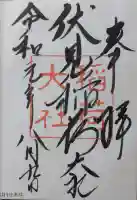 奉拝
伏見稲荷大社
令和元年八月
稲荷
大社